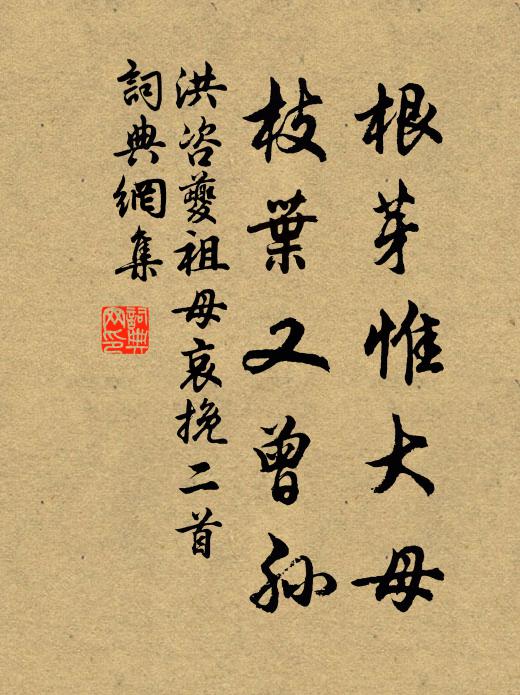 根芽惟大母
枝葉又曾孫
洪咨夔祖母哀挽二首
詞典網集
詞典網印